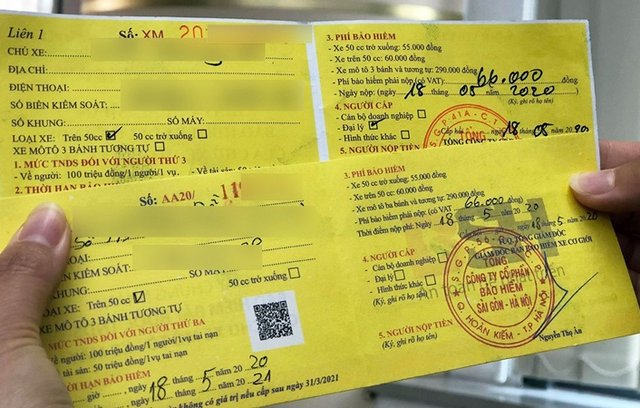 Liên 1
Số: XM 20
CHỦ XE:
ĐỊA CHỈ:
ĐIỆN THOẠI:
SỐ BIỂN KIỂM SOÁT:
SỐ KHUNG: SỐ MÁY:
LOẠI XE: Trên 50cc 50 cc trở xuống:
XE MÔTÔ 3 BÁNH TƯƠNG TỰ
1. MỨC TNDS ĐỐI VỚI NGƯỜI THỨ 3
- Về người: 100 triệu đồng/1 người/1 vụ.
2. THỜI HẠN BẢO
3. PHÍ BẢO HIỂM
- Xe 50 cc trở xuống: 55.000 đồng
- Xe trên 50 cc: 60.000 đồng
- Xe mô tô 3 bánh và tương tự: 290.000 đồng
- Phí bảo hiểm phải nộp (có VAT): 66.000 đồng
- Ngày nộp: (ngày 18 tháng 05 năm 2020
(Ký, ghi rõ họ tên)
4. NGƯỜI CẤP
- Cán bộ doanh nghiệp
- Đại lý
- Hình thức khác
Cấp 18 05 2020
5. NGƯỜI NỘP TIỀN
Số: AA20/ 11
BIỂN KIỂM SOÁT:
KHUNG: SỐ MÁY
XE: Trên 50 cc 50 cc trở xuống
XE MÔ TÔ 3 BÁNH TƯƠNG TỰ
MỨC TNDS ĐỐI VỚI NGƯỜI THỨ BA
về người: 100 triệu đồng/1 người/1 vụ tai nạn
tài sản: 50 triệu đồng/1 vụ tai nạn
THỜI HẠN BẢO HIỂM
giờ, ngày 18 tháng 5 năm 20 20
ngày 18 tháng 5 năm 20 21
không có giá trị nếu cấp sau ngày 31/3/2021
3. PHÍ BẢO HIỂM
- Xe 50 cc trở xuống: 55.000 đồng
- Xe trên 50 cc: 60.000 đồng
- Xe mô tô ba bánh và tương tự: 290.000 đồng
- Phí bảo hiểm phải nộp (có VAT) 66.000 đồng
Thời điểm nộp phí: Ngày 18 tháng 5 năm 20 20
(Ký, ghi rõ họ tên)
ngày 18 tháng 5 năm 20 20
TỔNG GIÁM ĐỐC
GIÁM ĐỐC BAN BẢO HIỂM XE CƠ GIỚI
4. NGƯỜI CẤP
- Cán bộ doanh nghiệp
- Đại lý
- Hình thức khác
(Ký, ghi rõ họ tên)
TỔNG
CÔNG TY CỔ PHẦN
BẢO HIỂM
SÀI GÒN - HÀ NỘI
Q. HOÀN KIẾM - TP HÀ NỘI
5. NGƯỜI NỘP TIỀN
Nguyễn Thị Ân